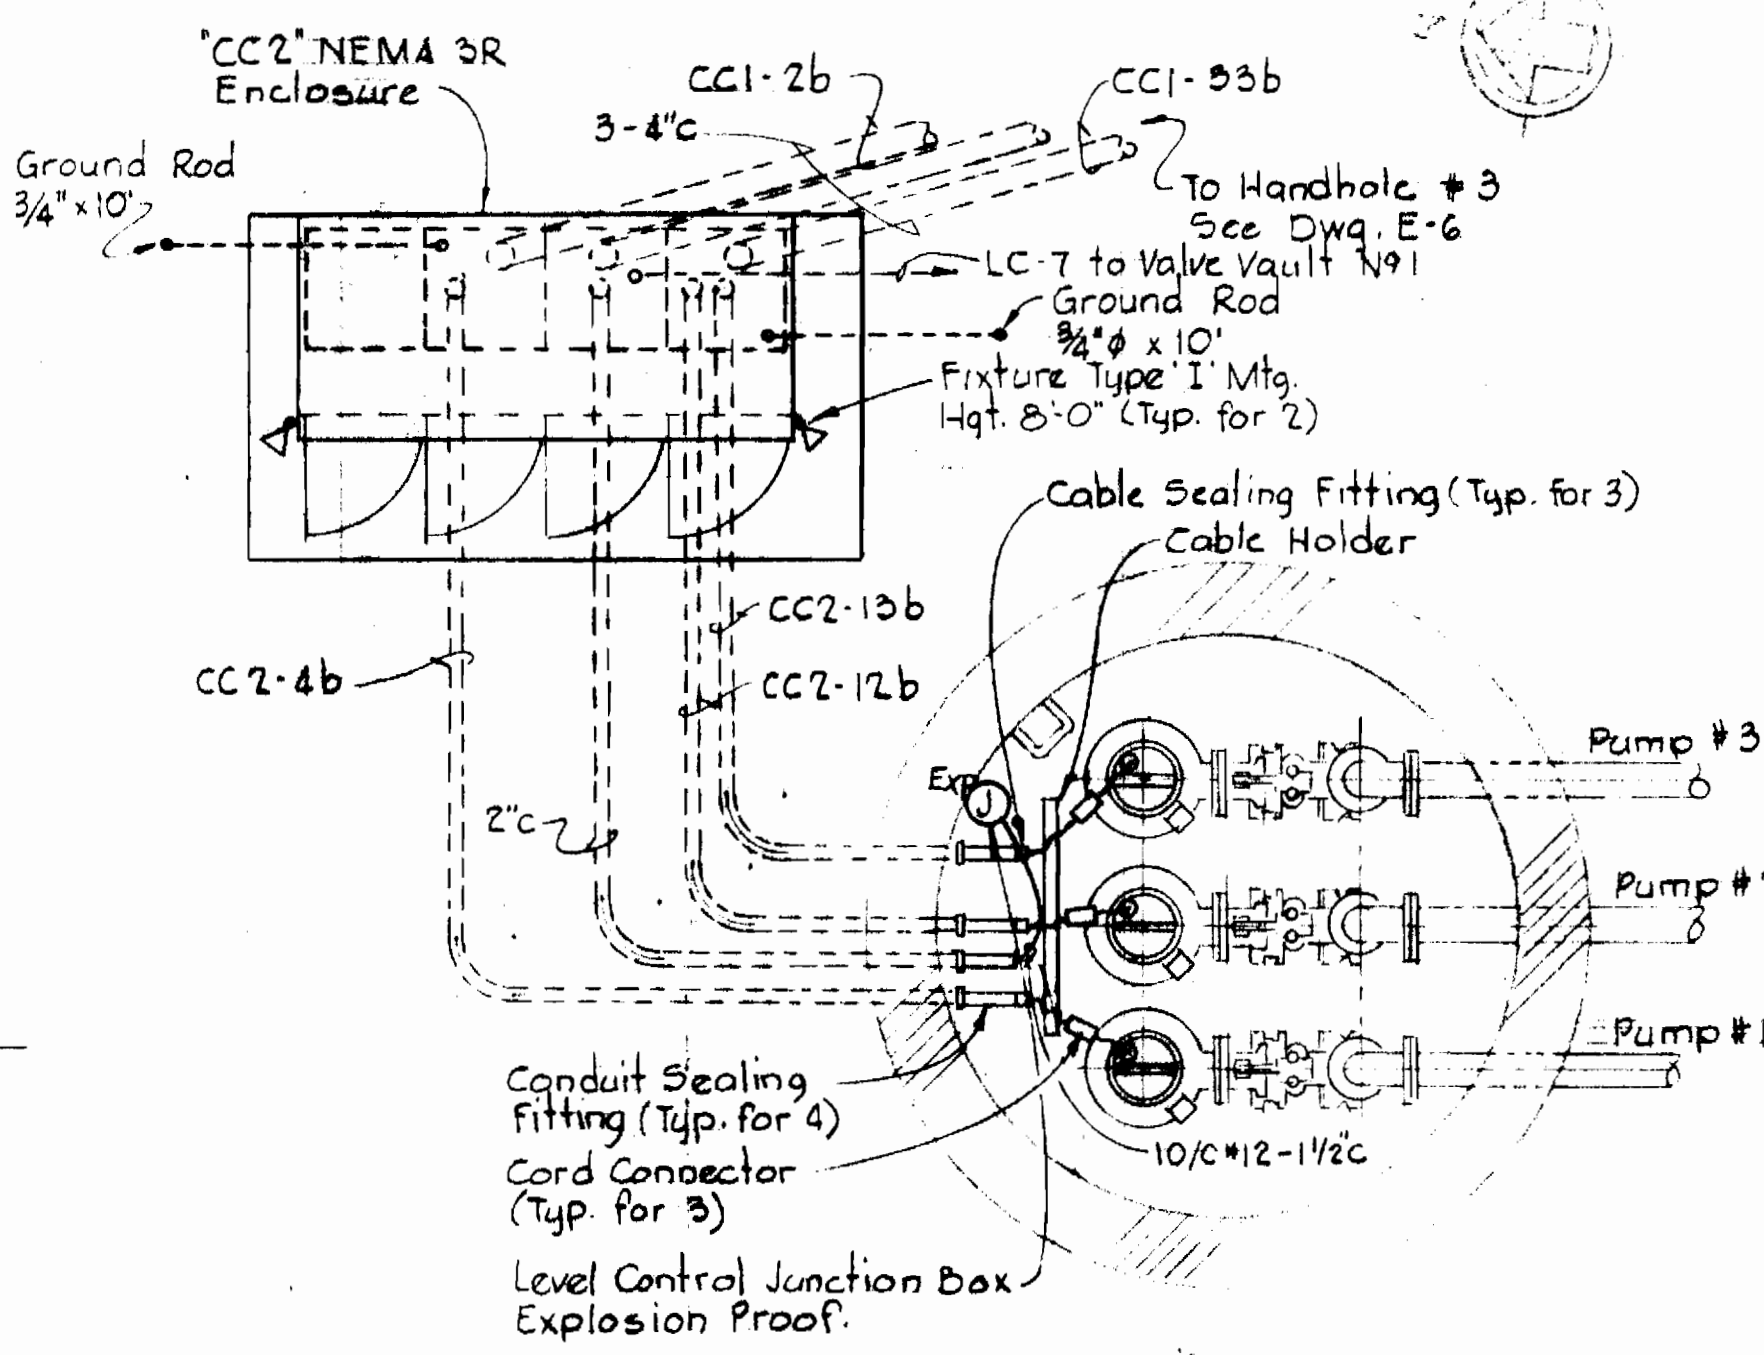 "CC2" NEMA 3R
Enclosure
CC1-2b
CC1-33b
3-4"C
Ground Rod
3/4" x 10'
To Handhole #3
See Dwg. E-6
LC-7 to Valve Vault Nº1
Ground Rod
3/4"ϕ x 10'
Fixture Type 'I' Mtg.
Hgt. 8'-0" (Typ. for 2)
Cable Sealing Fitting (Typ. for 3)
Cable Holder
CC2-13b
CC2-4b
CC2-12b
Pump #3
Exp
J
2"C
Pump #
Pump #1
Conduit Sealing
Fitting (Typ. for 4)
10/C #12-1 1/2"C
Cord Connector
(Typ. for 3)
Level Control Junction Box
Explosion Proof.